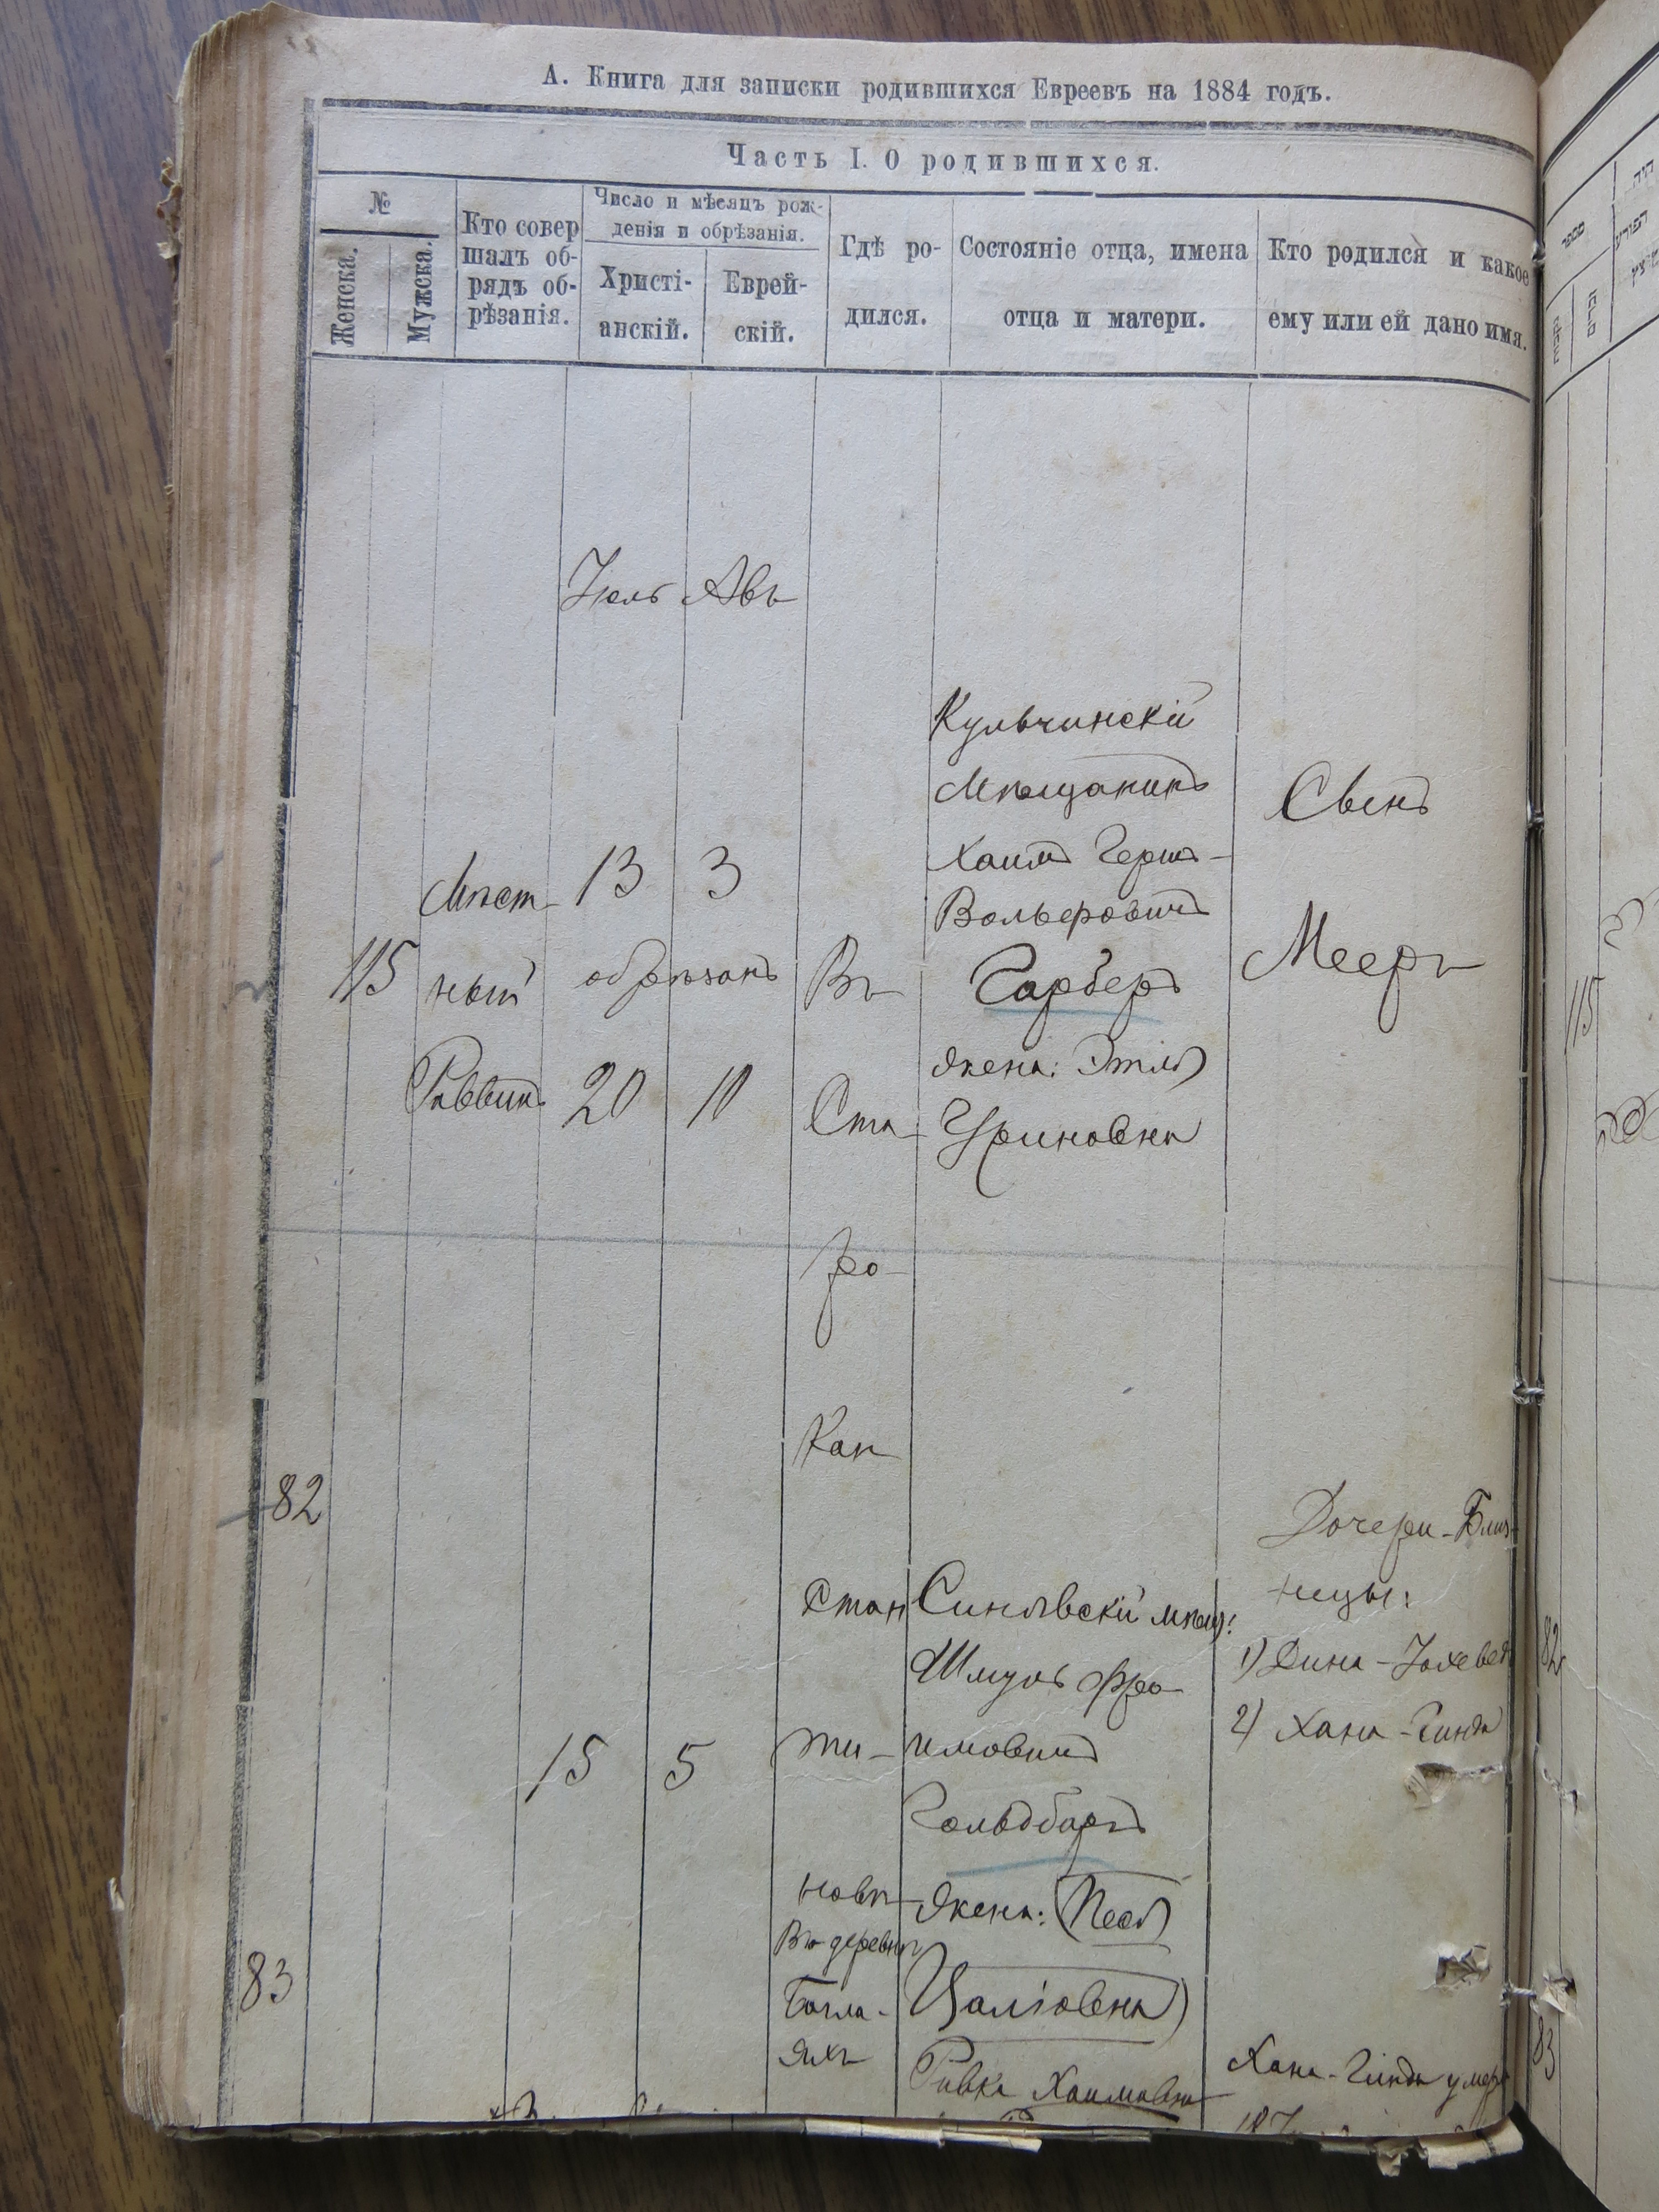 А. Книга для записки родившихся Евреевъ на 1884 годъ.
Часть I. О родившихся.
№
Женска.
Мужска.
Кто совер
шалъ об-
рядъ об-
рѣзанія.
Число и мѣсяцъ рож-
денія и обрѣзанія.
Христі-
анскій.
Еврей-
скій.
Гдѣ ро-
дился.
Состояніе отца, имена
отца и матери.
Кто родился и какое
ему или ей дано имя.
Іюль Авъ
115
Мѣст-
ный
Раввинъ
13 3
обрѣзанъ
20 10
Въ
Ста-
ро-
Кон
стан
ти-
новѣ
Кульчинскій
Мѣщанинъ
Хаимъ Герш-
Вольфовичъ
Гарберъ
Жена: Этля
Уриновна
Сынъ
Мееръ
82
83
15 5
Синявскій мѣщ:
Шмуль Фро-
имовичъ
Гольдбаргъ
Жена: (Песя)
Цаліовна)
Ривка Хаимовна
Дочери-Близ-
ницы:
1) Дина-Іохевет
2) Хана-Гинда
Въ деревнѣ
Багла-
яхъ
Хана-Гинда умер
115
82
83